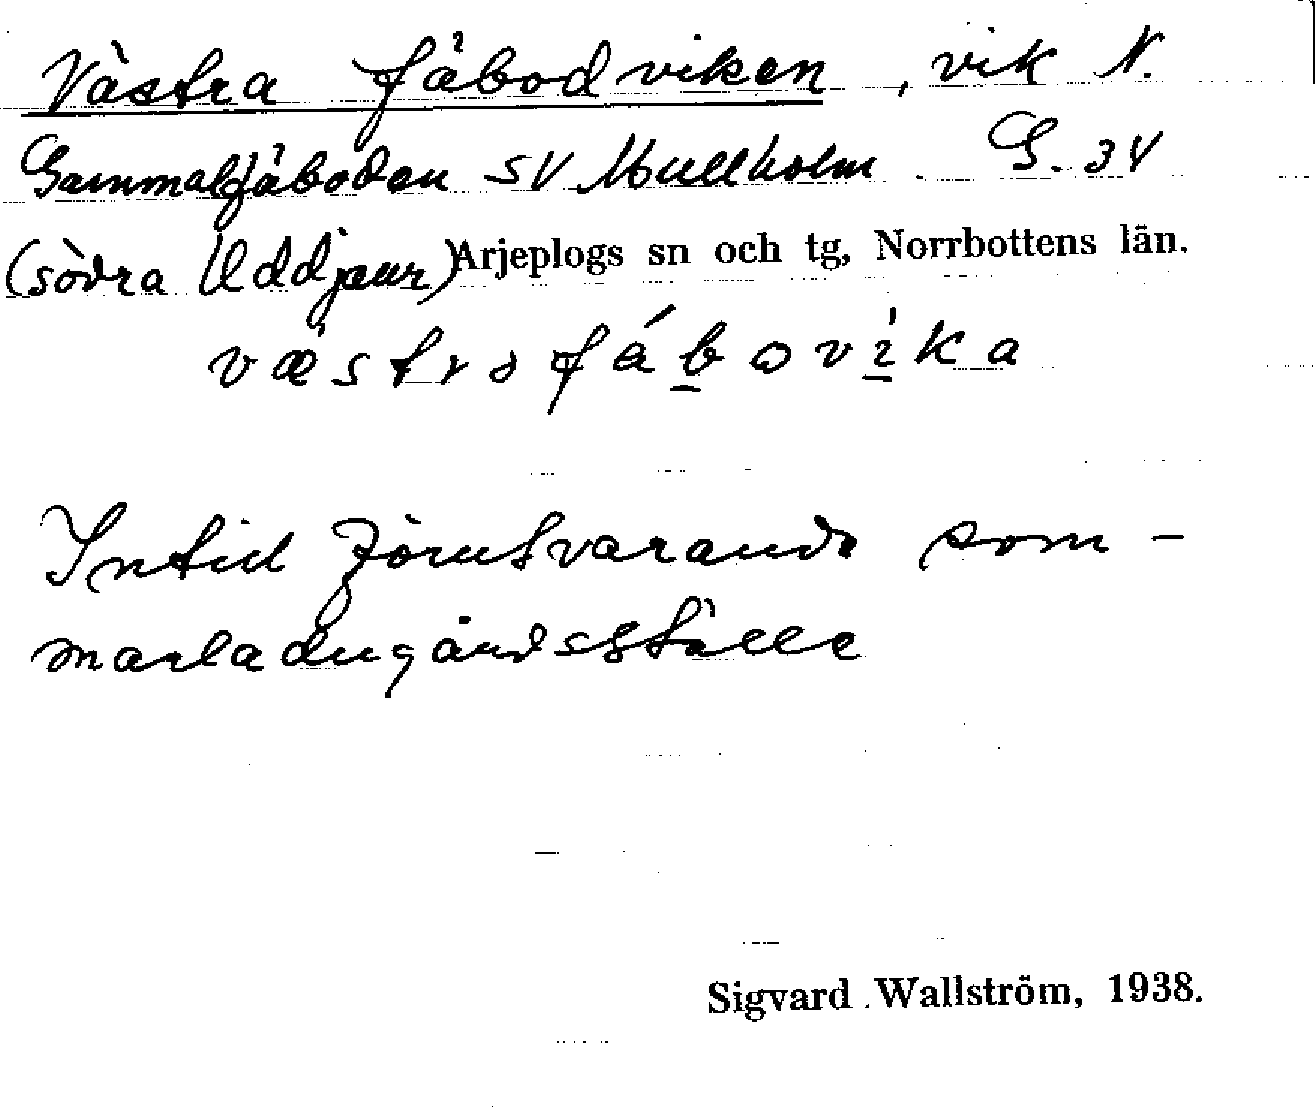 Västra fäbodviken, vik N.
Gammalfjäboden SV Mullholm G. 34
(södra Uddjaur) Arjeplogs sn och tg, Norrbottens län.
væstrə fábovíka
Intill förutvarande som-
marladugårdsställe
Sigvard Wallström, 1938.